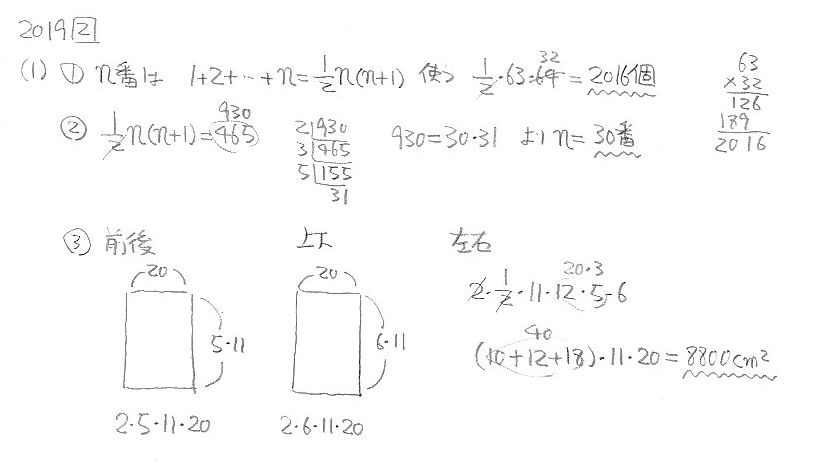 2019 2
(1) ① n番は 1+2+…+n=1/2n(n+1) 使って 1/2・63・64=2016個
32
63
×32
126
189
2016
② 1/2n(n+1)=465
930
2|930
3|465
5|155
31
930=30・31 より n=30番
③ 前後 上下 左右
20
5・11
2・5・11・20
20
6・11
2・6・11・20
20・3
2・1/2・11・12・5・6
40
(10+12+18)・11・20=8800cm²